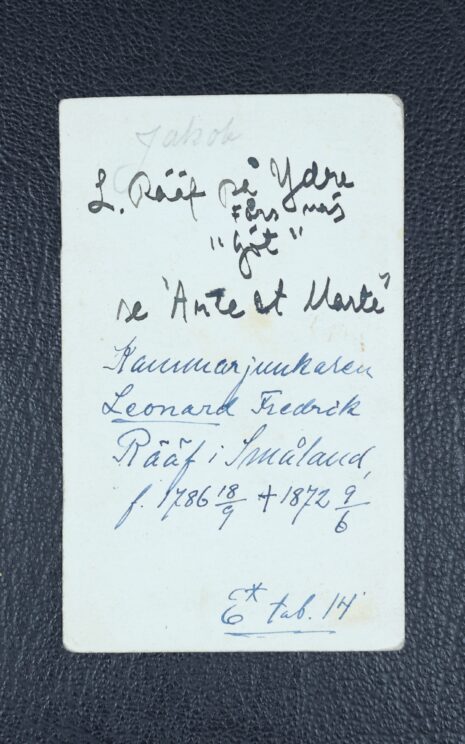 Jakob
L. Rääf på Ydre
Fors näs
"Göt"
se "Arte et Marte"
Kammarjunkaren
Leonard Fredrik
Rääf i Småland,
f. 1786 18/9 † 1872 9/6
E* tab. 14